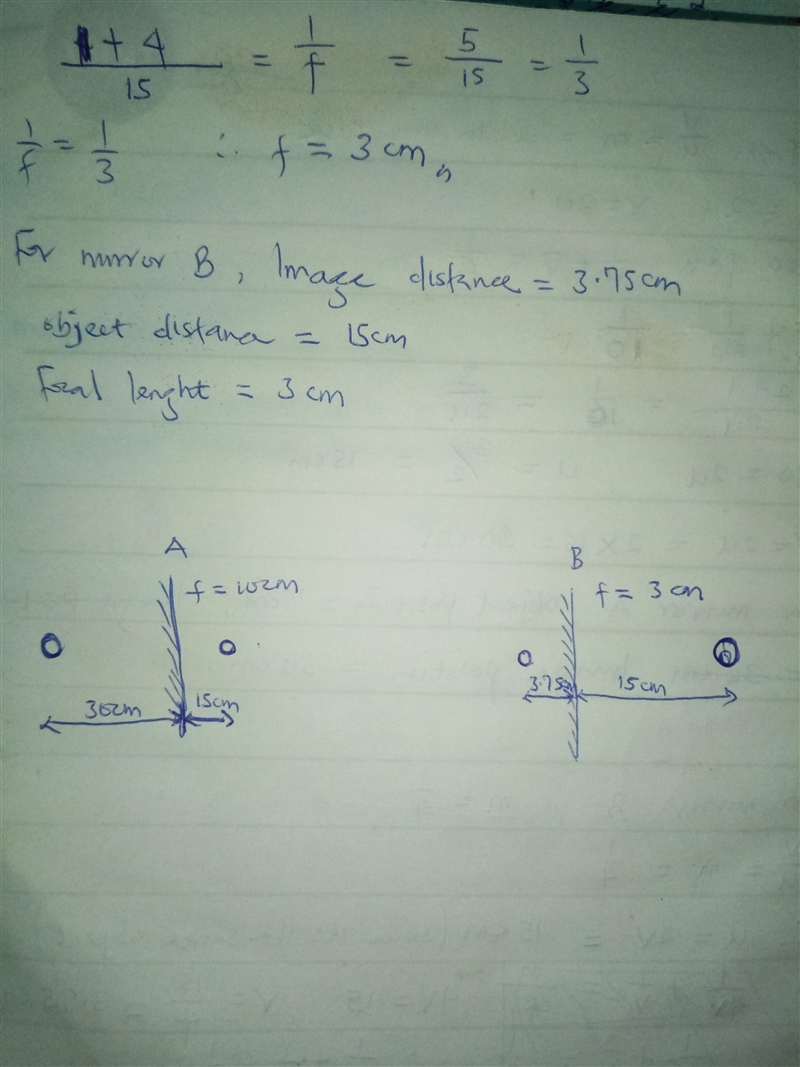 1 + 4 / 15 = 1/f = 5/15 = 1/3
1/f = 1/3 ∴ f = 3 cm,,
For mirror B, Image distance = 3.75cm
object distance = 15cm
Focal lenght = 3 cm
A
f = 10cm
30cm
15cm
B
f = 3 cm
3.75cm
15cm